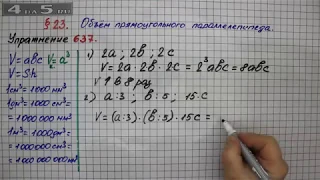 4 на 5 ru
§ 23. Объём прямоугольного параллелепипеда.
Упражнение 637.
V = abc V = a³
V = Sh
1см³ = 1000 мм³
1дм³ = 1000 см³=
= 1000 000 мм³
1м³ = 1000 дм³=
= 1000 000 см³=
= 1000 000 000 мм³
1) 2a ; 2b ; 2c
V = 2a · 2b · 2c = 2³abc = 8abc
V ↑ в 8 раз
2) a:3 ; b:5 ; 15·c
V = (a:3)·(b:5)·15c =